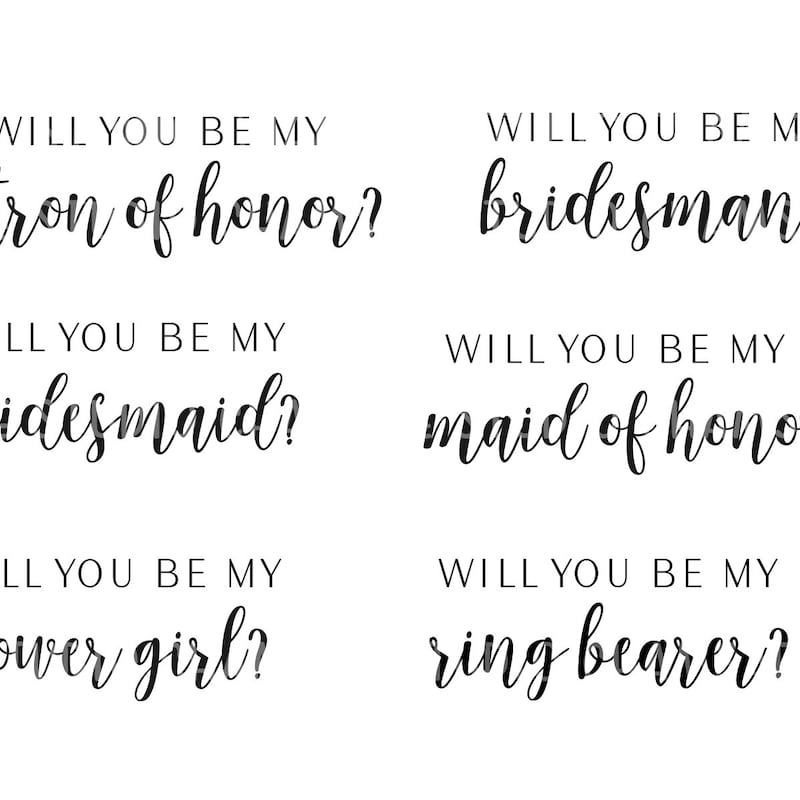 WILL YOU BE MY
tron of honor?
WILL YOU BE M
bridesman
ILL YOU BE MY
idesmaid?
WILL YOU BE MY
maid of hono
LL YOU BE MY
ower girl?
WILL YOU BE MY
ring bearer?